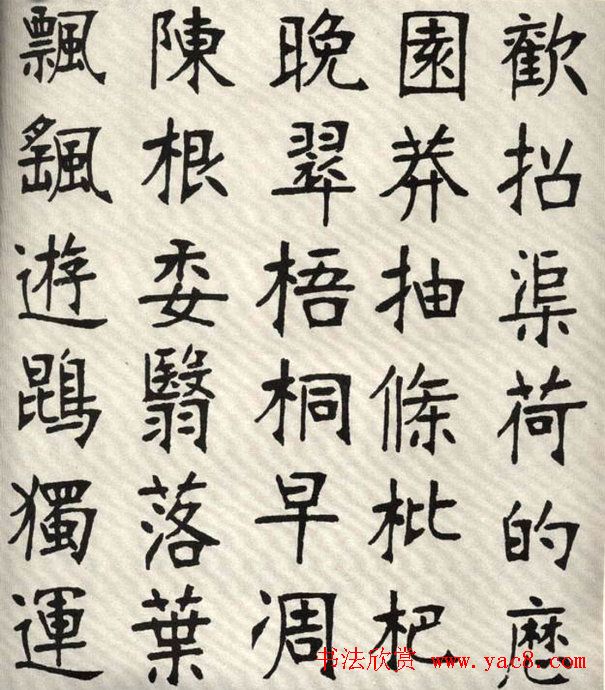 歡招渠荷的歷
園莽抽條枇杷
晚翠梧桐早凋
陳根委翳落葉
飄颻遊鵾獨運
书法欣赏 www.yac8.com